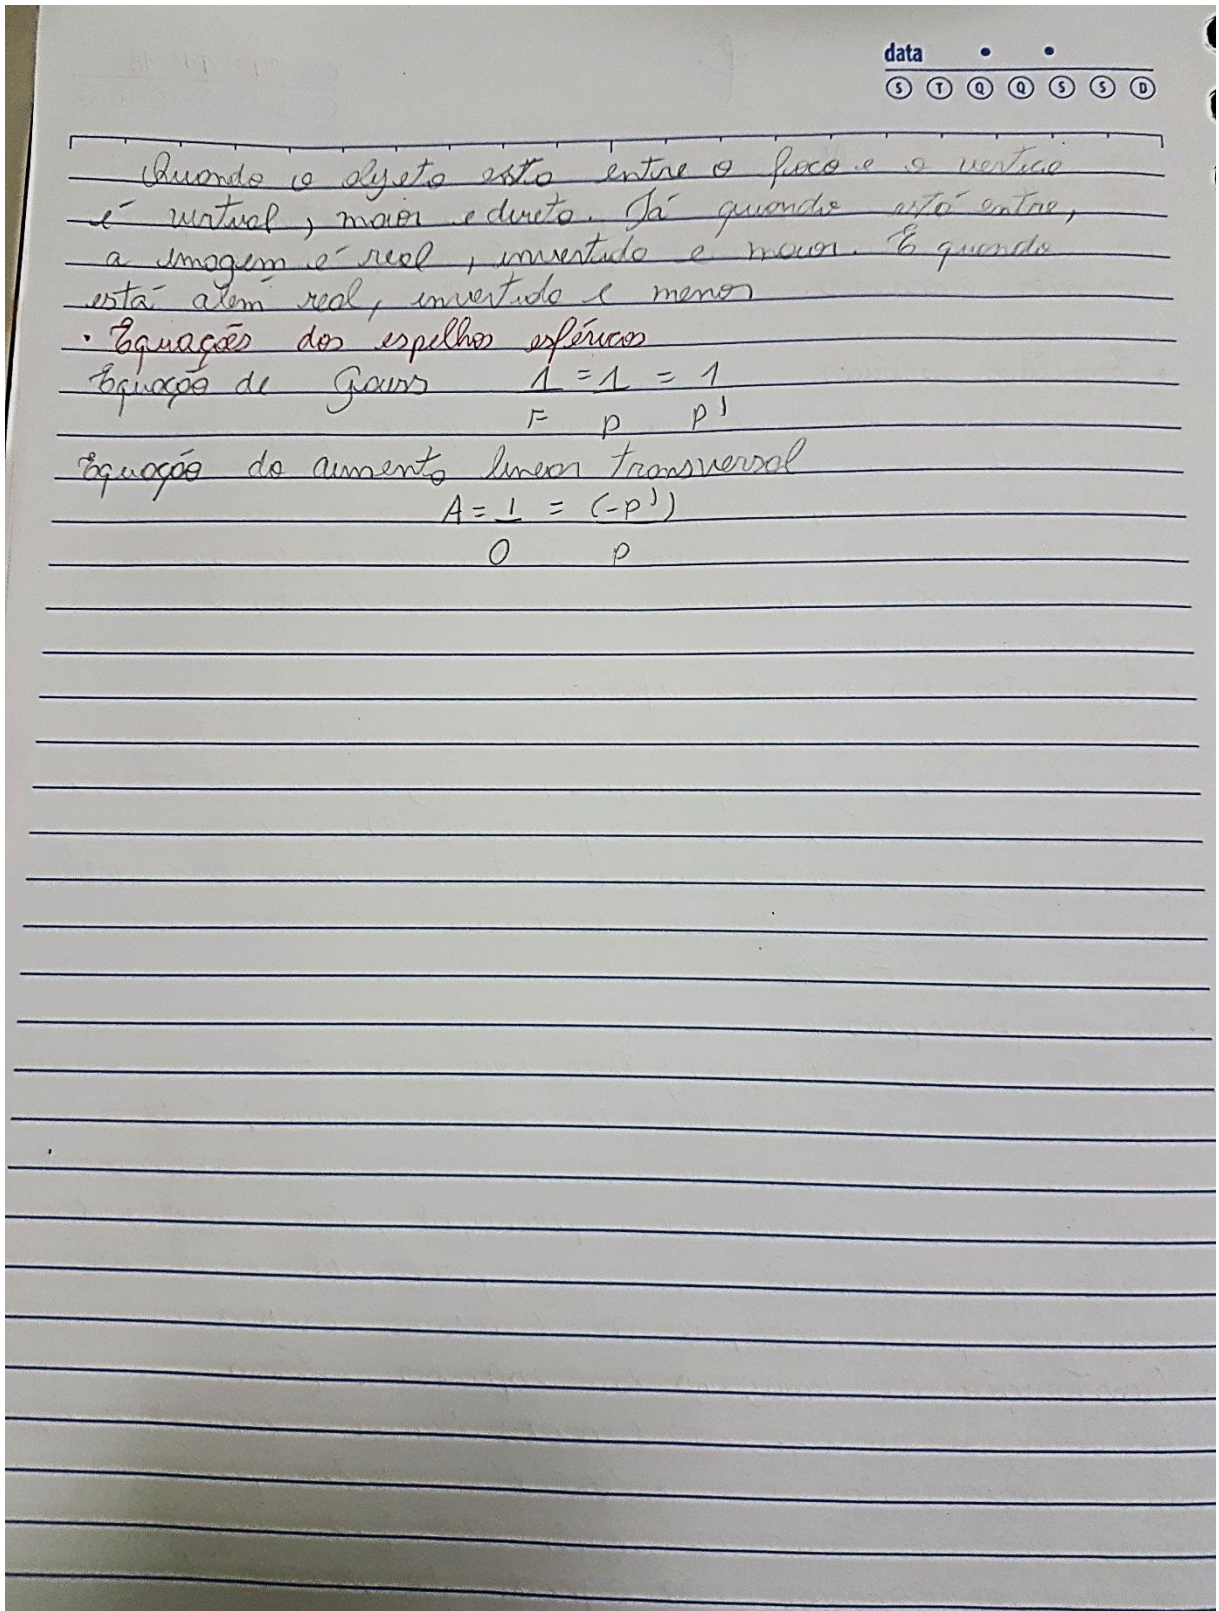 data
S T Q Q S S D
Quando o objeto esta entre o foco e o vertice
é virtual, maior e direto. Já quando está entre,
a imagem é real, invertido e maior. E quando
está além real, invertido e menor
• Equações dos espelhos esféricos
Equação de Gauss 1 = 1 = 1
F p p'
Equação do aumento linear transversal
A = I = (-p')
O p